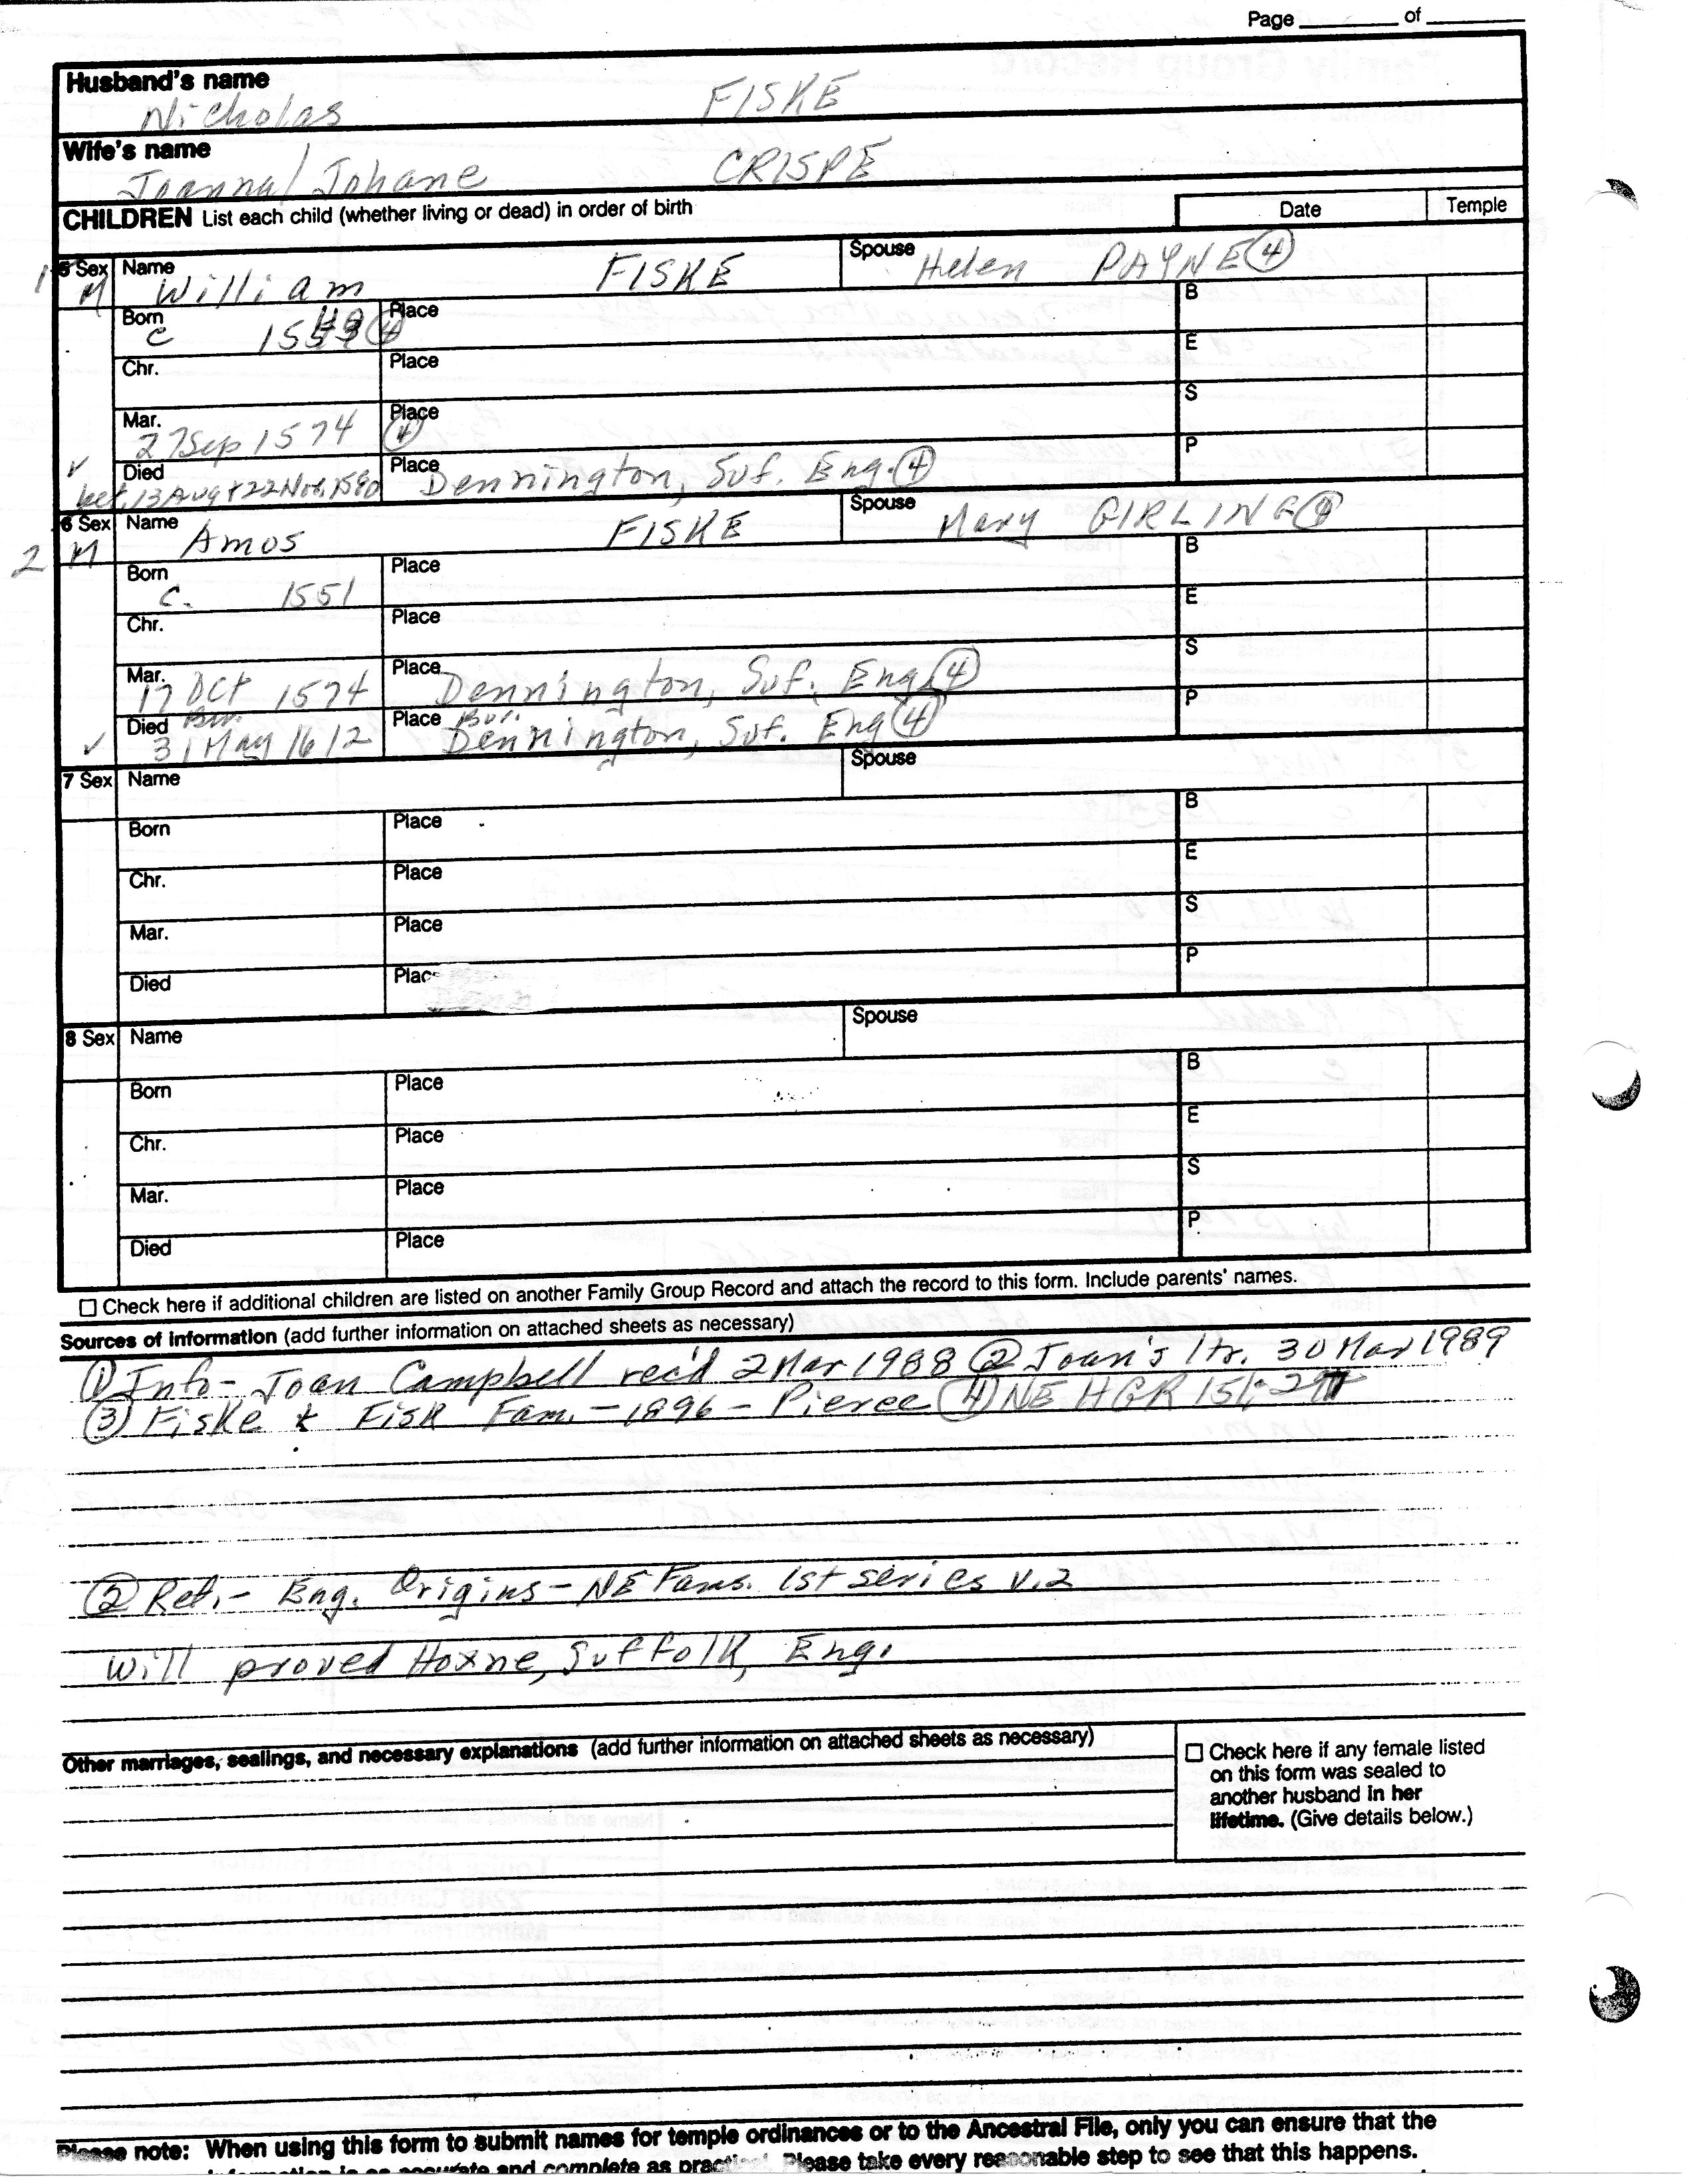 Page ______ of ______
Husband's name
Nicholas FISKE
Wife's name
Joanna/Johane CRISPE
CHILDREN List each child (whether living or dead) in order of birth Date Temple
1 5 Sex Name Spouse
M William FISKE Helen PAYNE ④
Born Place B
c 15 ④
E
Chr. Place
S
Mar. Place
27 Sep 1574 ④
P
Died Place
bet. 13 Aug + 22 Nov. 1580 Dennington, Suf. Eng. ④
6 Sex Name Spouse
2 M Amos FISKE Mary GIRLING ④
Born Place B
c. 1551
E
Chr. Place
S
Mar. Place
17 Oct 1574 Dennington, Suf. Eng. ④
P
Died Bur. Place Bur.
31 May 1612 Dennington, Suf. Eng ④
7 Sex Name Spouse
Born Place B
E
Chr. Place
S
Mar. Place
P
Died Place
8 Sex Name Spouse
Born Place B
E
Chr. Place
S
Mar. Place
P
Died Place
☐ Check here if additional children are listed on another Family Group Record and attach the record to this form. Include parents' names.
Sources of information (add further information on attached sheets as necessary)
① Info- Joan Campbell rec'd 2 Mar 1988 ② Joan's ltr. 30 Mar 1989
③ Fiske & Fisk Fam. - 1896 - Pierce ④ NE HGR 151:
② Ref.- Eng. Origins - NE Fams. 1st series v.2
Will proved Hoxne, Suffolk, Eng.
Other marriages, sealings, and necessary explanations (add further information on attached sheets as necessary)
☐ Check here if any female listed
on this form was sealed to
another husband in her
lifetime. (Give details below.)
Please note: When using this form to submit names for temple ordinances or to the Ancestral File, only you can ensure that the
information is as accurate and complete as practical. Please take every reasonable step to see that this happens.